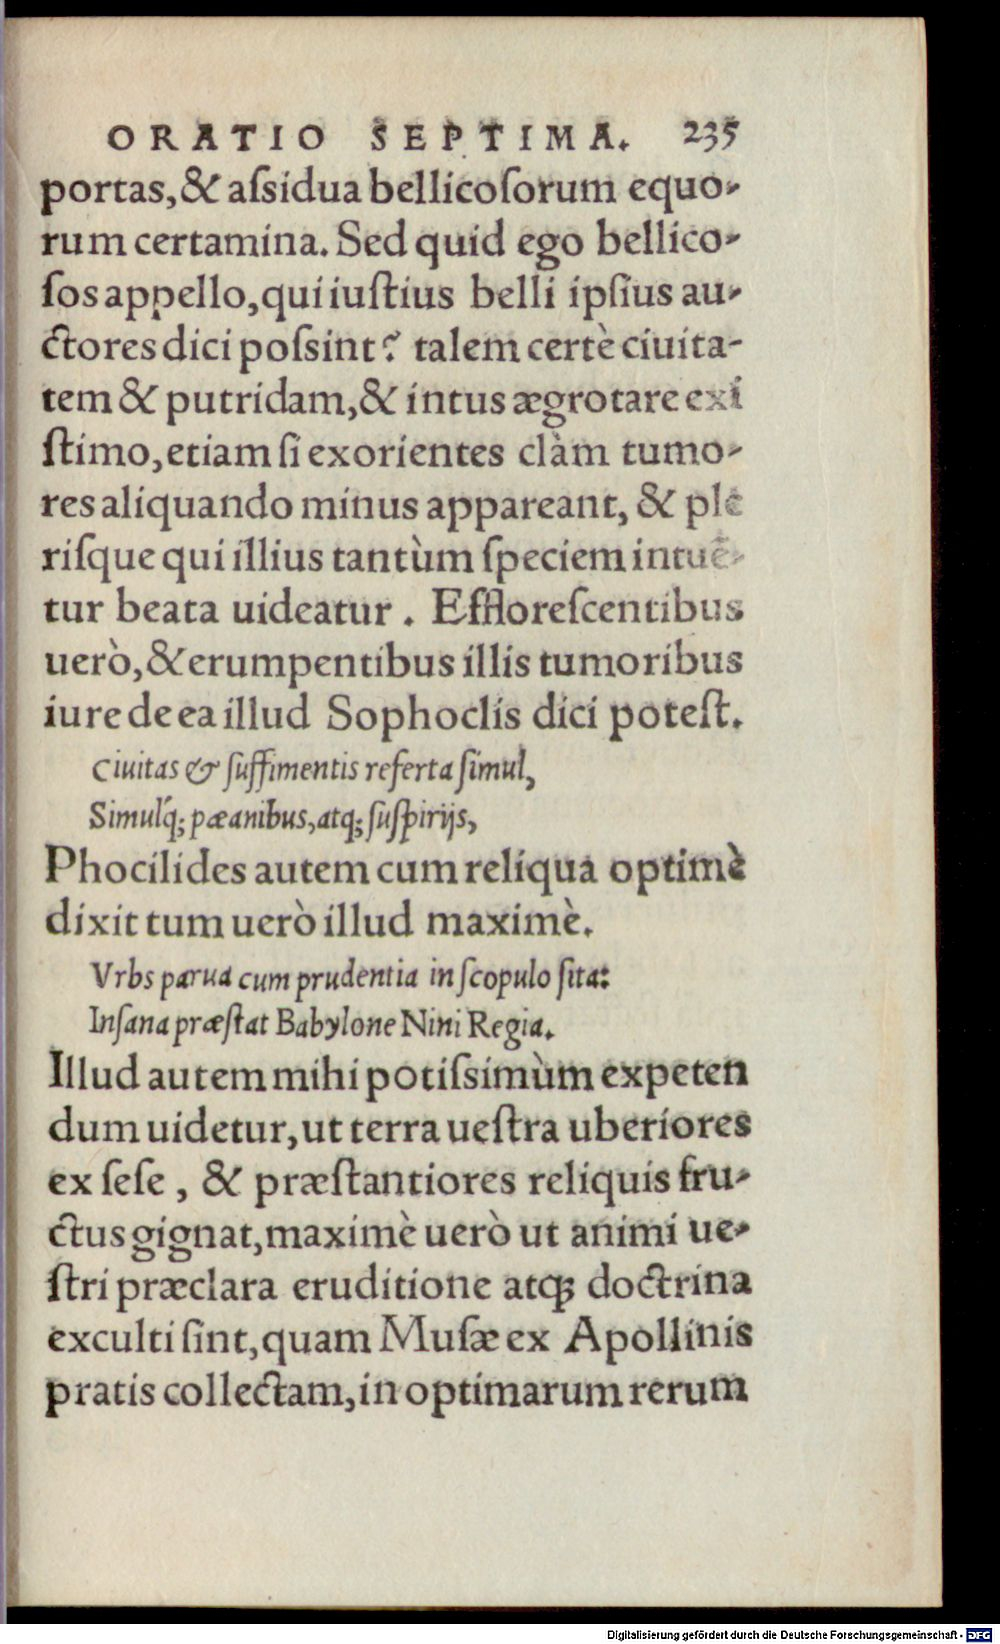 ORATIO SEPTIMA. 235
portas, & aſsidua bellicoſorum equo-
rum certamina. Sed quid ego bellico-
ſos appello, qui iuſtius belli ipſius au-
ctores dici poſsint? talem certè ciuita-
tem & putridam, & intus ægrotare exi
ſtimo, etiam ſi exorientes clàm tumo-
res aliquando minus appareant, & ple
riſque qui illius tantùm ſpeciem intuē-
tur beata uideatur. Efflorefcentibus
uerò, & erumpentibus illis tumoribus
iure de ea illud Sophoclis dici poteſt.
Ciuitas & ſuffimentis referta ſimul,
Simulq́; pæanibus, atq; ſuſpirijs,
Phocilides autem cum reliqua optimè
dixit tum uerò illud maximè.
Vrbs parua cum prudentia in ſcopulo ſita:
Inſana præſtat Babylone Nini Regia.
Illud autem mihi potiſsimùm expeten
dum uidetur, ut terra ueſtra uberiores
ex ſeſe, & præſtantiores reliquis fru-
ctus gignat, maximè uerò ut animi ue-
ſtri præclara eruditione atq; doctrina
exculti ſint, quam Muſæ ex Apollinis
pratis collectam, in optimarum rerum
Digitalisierung gefördert durch die Deutsche Forschungsgemeinschaft - DFG